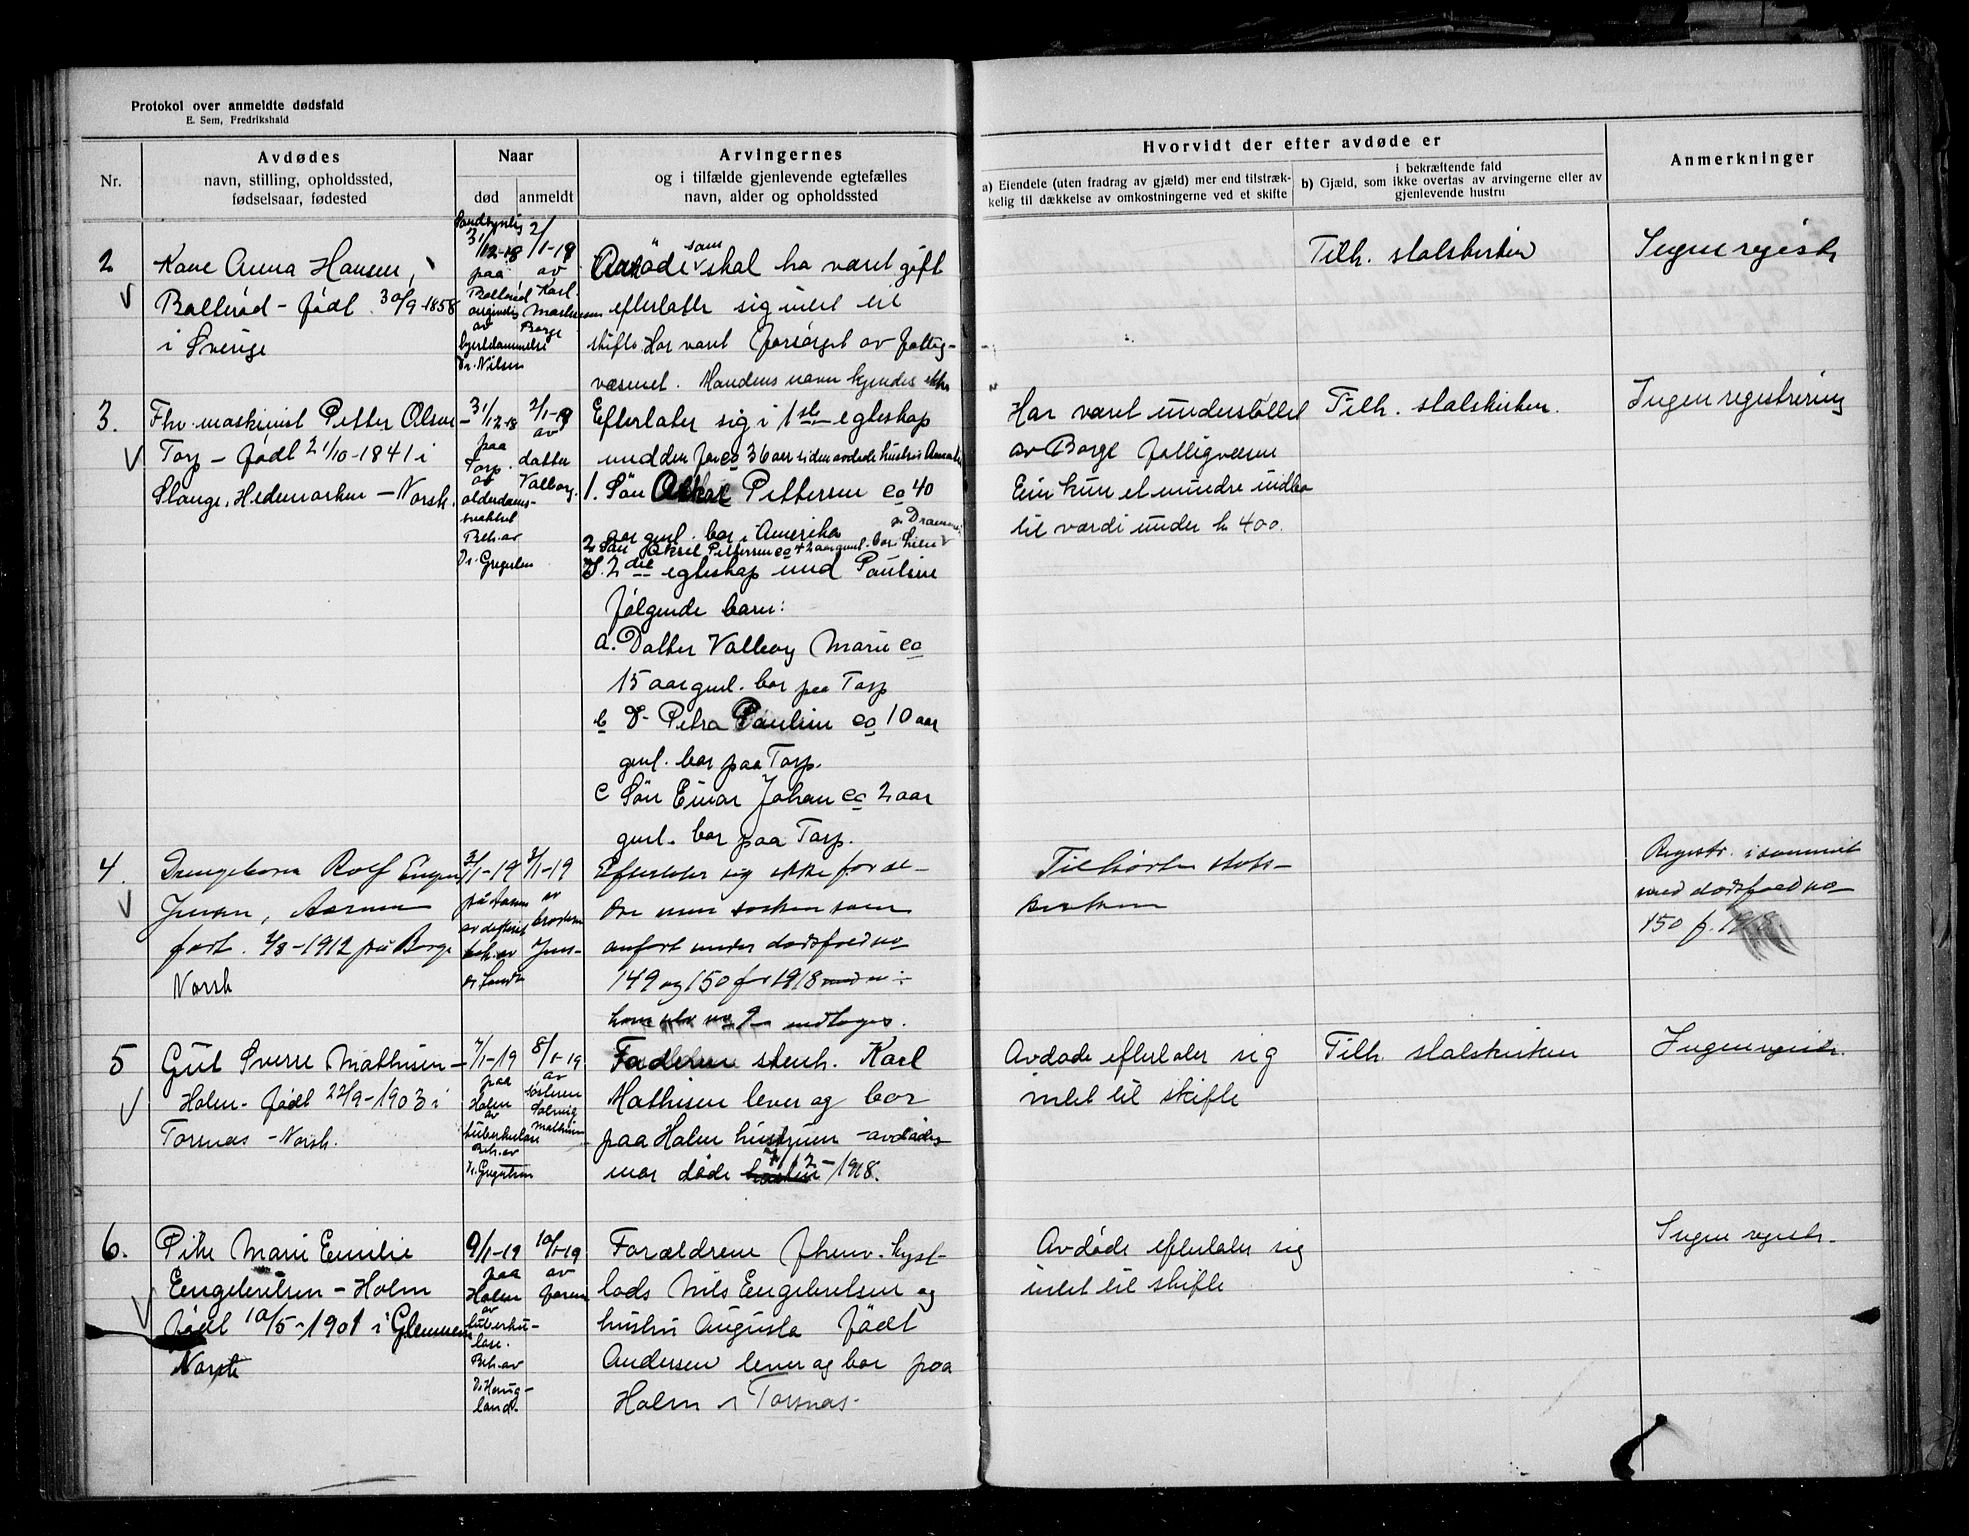 Protokol over anmeldte dødsfald
E. Sem, Fredrikshald
Nr.
Avdødes
navn, stilling, opholdssted,
fødselsaar, fødested
Naar
død
anmeldt
Arvingernes
og i tilfælde gjenlevende egtefælles
navn, alder og opholdssted
Hvorvidt der efter avdøde er
a) Eiendele (uten fradrag av gjæld) mer end tilstræk-
kelig til dækkelse av omkostningerne ved et skifte
i bekræftende fald
b) Gjæld, som ikke overtas av arvingerne eller av
gjenlevende hustru
Anmerkninger
2
Kone Anna Hansen,
Ballerød - født 30/9-1858
i Sverige
Sandsynlig
31/12-18
paa
Ballerød
av
hjertelammelse
Dr. Nilsen
2/1-19
av
Karl
Mathisen
Borge
Avdøde som skal ha været gift
efterlater sig intet til
skifte. Har været forsørget av fattig-
væsenet. Mandens navn kjendes ikke
Tilh. statskirken
Ingen registr.
3.
Fhv. maskinist Petter Olsen
Torp - født 21/10-1841 i
Stange, Hedemarken - Norsk.
31/12-18
paa
Torp.
av
alderdoms-
svakhet
Beh. av
Dr. Gregersen
2/1-19
av
datter
Valborg.
Efterlater sig i 1ste egteskap
med den for ca 36 aar siden avdøde hustru
1. Søn Oskar Pettersen ca 40
aar gml. bor i Amerika
2 Søn Aksel Pettersen ca 42 aar gml. bor i Lier
v Drammen
I 2det egteskap med Pauline
følgende barn:
a. Datter Valborg Marie ca
15 aar gml. bor paa Torp
b D- Petra Pauline ca 10 aar
gml. bor paa Torp.
c Søn Einar Johan ca 2 aar
gml. bor paa Torp.
Har været understøttet
av Borge fattigvæsen
Eier kun et mindre indbo
til værdi under kr 400.
Tilh. statskirken.
Ingen registrering
4.
Drengebarn Rolf Eugen
Jensen,
født. 2/8-1912 på Borge
Norsk
3/1-19
7/1-19
av
broderen
Jens
Efterlater sig ikke foræl-
dre men søsken som
anført under dødsfald no
149 og 150 for 1918
Tilhørte stats-
kirken
Registr. i sammen
med dødsfald no
150 f. 1918.
5
Gut Sverre Mathisen -
Holm - født 22/9-1903 i
Torsnæs - Norsk.
7/1-19
paa
Holm
av
tuberkulose
Beh. av
Dr. Gregersen
8/1-19
av
søsteren
Solveig
Mathisen
Faderen stenh. Karl
Mathisen lever og bor
paa Holm hustruen - avdødes
mor døde 12-1918.
Avdøde efterlater sig
intet til skifte
Tilh. statskirken
Ingen registr.
6.
Pike Marie Emilie
Engebretsen - Holm
født 10/5-1901 i Glemmen
Norsk
9/1-19
paa
Holm
av
tuberku-
lose.
Beh. av
Dr. Haug-
land.
10/1-19
av
faren
Forældrene fhenv. kyst-
lods Nils Engebretsen og
hustru Augusta født
Andersen lever og bor paa
Holm i Torsnæs.
Avdøde efterlater sig
intet til skifte
Ingen registr.